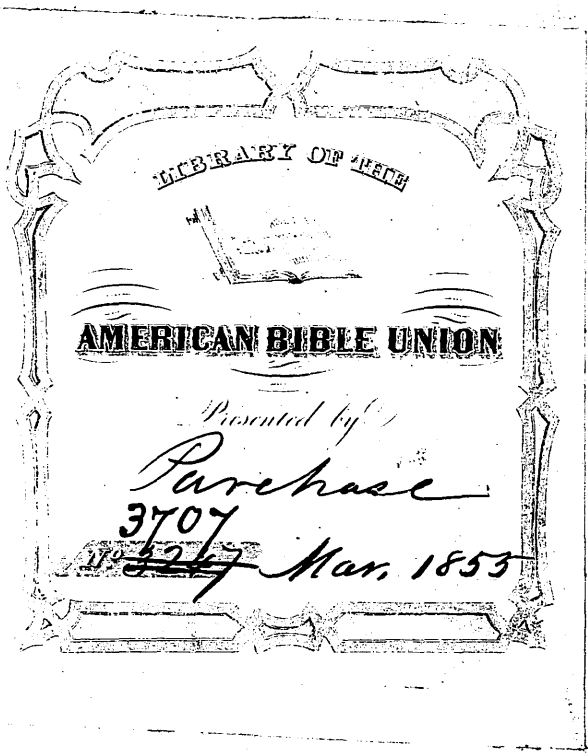 LIBRARY OF THE
AMERICAN BIBLE UNION
Presented by
Purchase
3707
No 3247 Mar. 1855